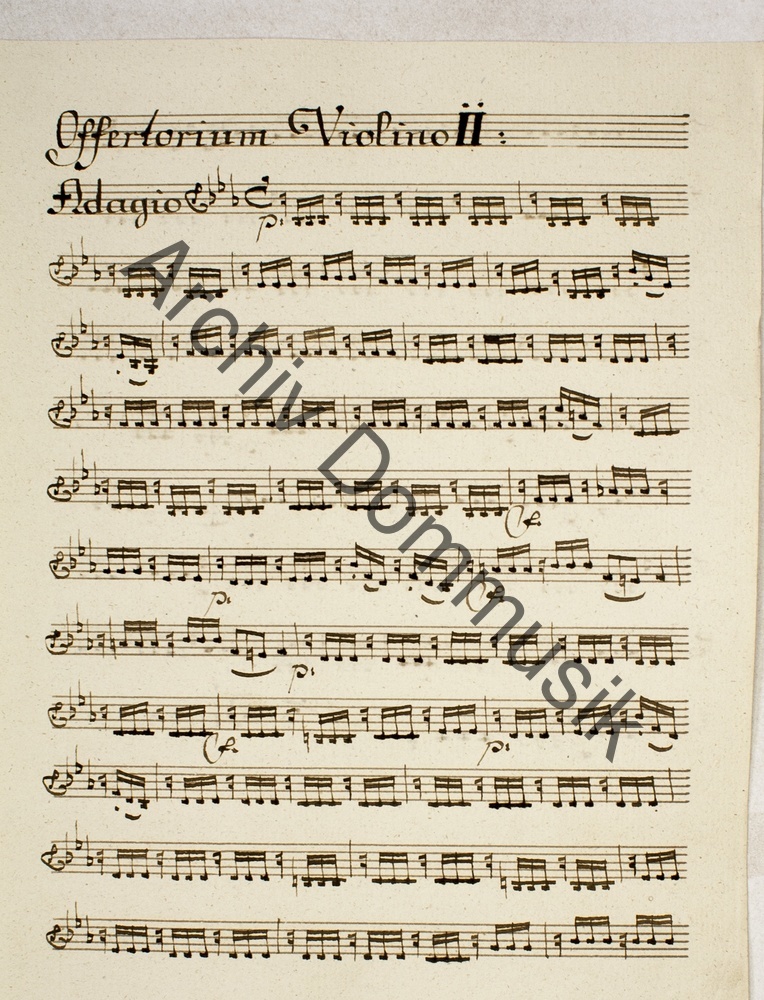 Offertorium Violino II:
Adagio
p:
Cf.
p:
Cf.
p:
Cf.
p:
Archiv Dommusik